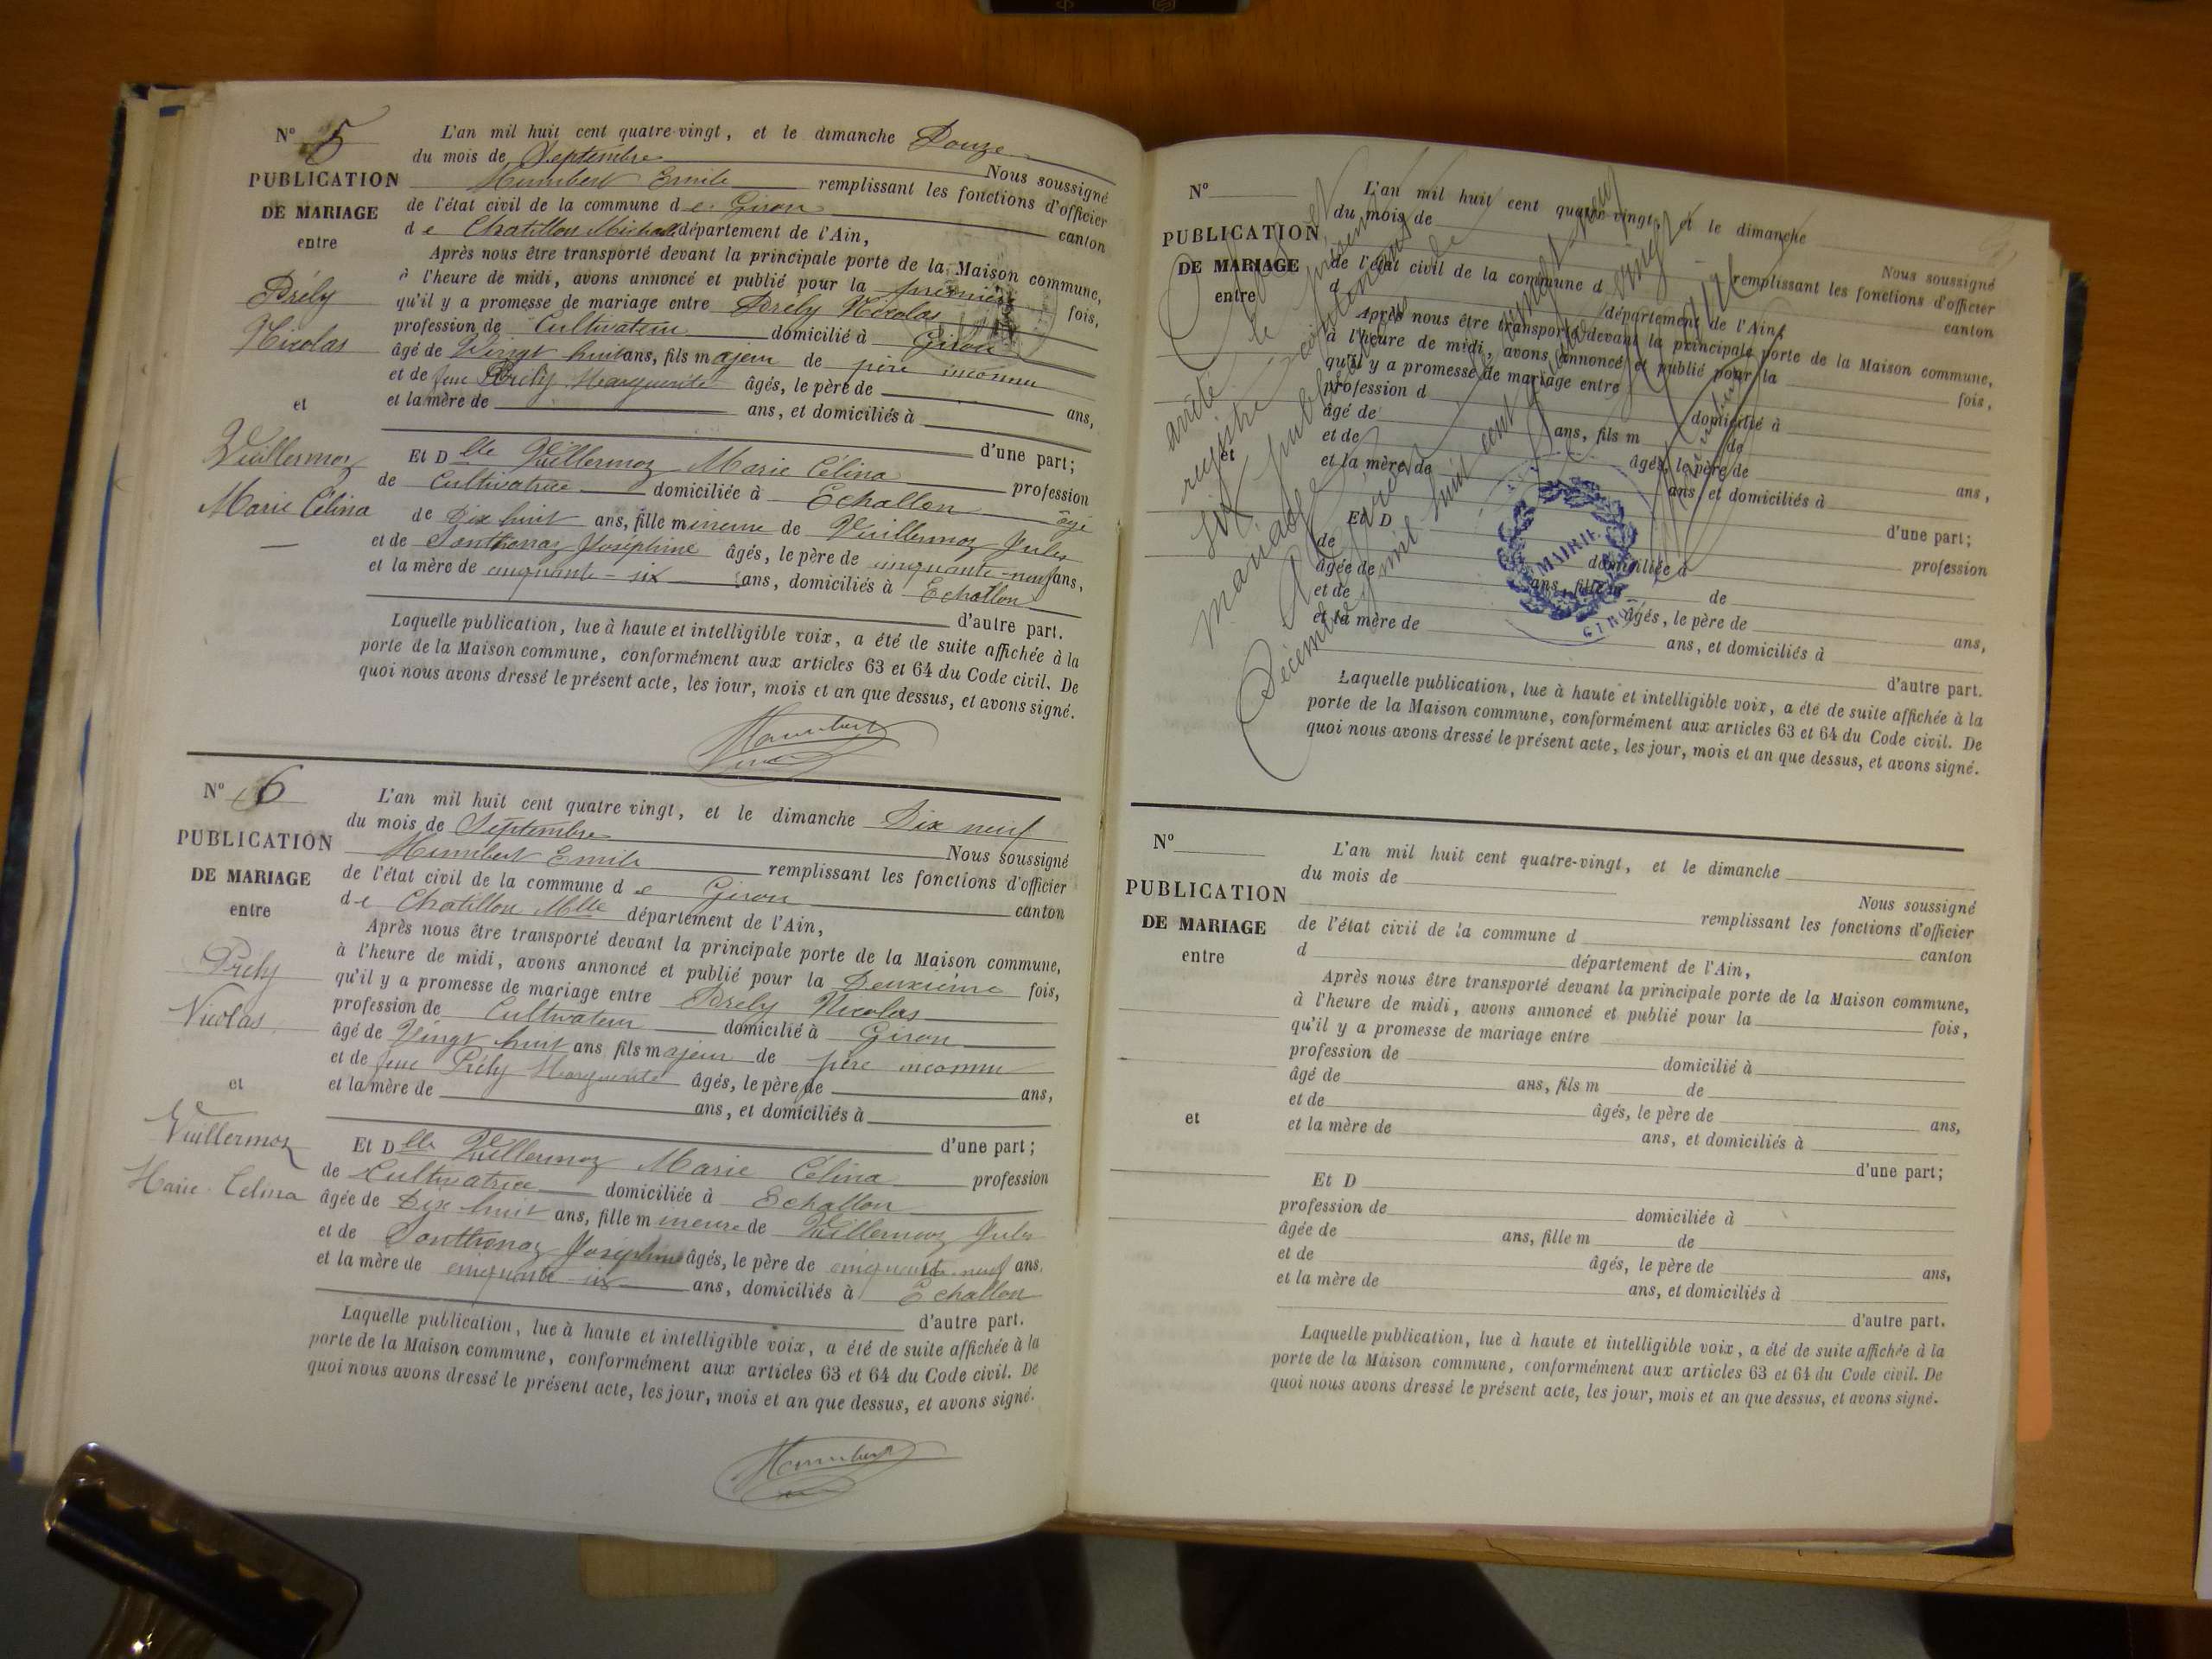 N° 5
PUBLICATION
DE MARIAGE
entre
Prély
Nicolas
et
Vuillermoz
Marie Célina
L'an mil huit cent quatre-vingt, et le dimanche Douze
du mois de Septembre Nous soussigné
Humbert Emile remplissant les fonctions d'officier
de l'état civil de la commune de Giron canton
de Chatillon Michaille département de l'Ain,
Après nous être transporté devant la principale porte de la Maison commune,
à l'heure de midi, avons annoncé et publié pour la première fois,
qu'il y a promesse de mariage entre Prely Nicolas
profession de Cultivateur domicilié à Giron
âgé de Vingt huit ans, fils majeur de père inconnu
et de feue Prély Marguerite âgés, le père de ans,
et la mère de ans, et domiciliés à
d'une part;
Et Dlle Vuillermoz Marie Célina profession
de Cultivatrice domiciliée à Echallon âgé
de Dix huit ans, fille mineure de Vuillermoz Jules
et de Ponthonaz Joséphine âgés, le père de cinquante-neuf ans,
et la mère de cinquante-six ans, domiciliés à Echallon
d'autre part.
Laquelle publication, lue à haute et intelligible voix, a été de suite affichée à la
porte de la Maison commune, conformément aux articles 63 et 64 du Code civil. De
quoi nous avons dressé le présent acte, les jour, mois et an que dessus, et avons signé.
Humbert
N° 6
PUBLICATION
DE MARIAGE
entre
Prely
Nicolas
et
Vuillermoz
Marie Celina
L'an mil huit cent quatre vingt, et le dimanche Dix neuf
du mois de Septembre Nous soussigné
Humbert Emile remplissant les fonctions d'officier
de l'état civil de la commune de Giron canton
de Chatillon Mlle département de l'Ain,
Après nous être transporté devant la principale porte de la Maison commune,
à l'heure de midi, avons annoncé et publié pour la Deuxième fois,
qu'il y a promesse de mariage entre Prely Nicolas
profession de Cultivateur domicilié à Giron
âgé de Vingt huit ans, fils majeur de père inconnu
et de feue Prély Marguerite âgés, le père de ans,
et la mère de ans, et domiciliés à
d'une part;
Et Dlle Vuillermoz Marie Célina profession
de Cultivatrice domiciliée à Echallon
âgée de Dix huit ans, fille mineure de Vuillermoz Jules
et de Ponthonaz Joséphine âgés, le père de cinquante neuf ans,
et la mère de cinquante-six ans, domiciliés à Echallon
d'autre part.
Laquelle publication, lue à haute et intelligible voix, a été de suite affichée à la
porte de la Maison commune, conformément aux articles 63 et 64 du Code civil. De
quoi nous avons dressé le présent acte, les jour, mois et an que dessus, et avons signé.
Humbert
N°
PUBLICATION
DE MARIAGE
entre
et
L'an mil huit cent quatre-vingt, et le dimanche
du mois de Nous soussigné
remplissant les fonctions d'officier
de l'état civil de la commune d canton
d département de l'Ain,
Après nous être transporté devant la principale porte de la Maison commune,
à l'heure de midi, avons annoncé et publié pour la fois,
qu'il y a promesse de mariage entre
profession d domicilié à
âgé de ans, fils m de
et de âgés, le père de ans,
et la mère de ans, et domiciliés à
d'une part;
Et D profession
de domiciliée à
âgée de ans, fille m de
et de âgés, le père de ans,
et la mère de ans, et domiciliés à
d'autre part.
Laquelle publication, lue à haute et intelligible voix, a été de suite affichée à la
porte de la Maison commune, conformément aux articles 63 et 64 du Code civil. De
quoi nous avons dressé le présent acte, les jour, mois et an que dessus, et avons signé.
arrêté le présent
registre contenant
six publications de
mariage
A Giron
Décembre mil huit cent quatre vingt
MAIRIE
GIRON
N°
PUBLICATION
DE MARIAGE
entre
et
L'an mil huit cent quatre-vingt, et le dimanche
du mois de Nous soussigné
remplissant les fonctions d'officier
de l'état civil de la commune d canton
d département de l'Ain,
Après nous être transporté devant la principale porte de la Maison commune,
à l'heure de midi, avons annoncé et publié pour la fois,
qu'il y a promesse de mariage entre
profession de domicilié à
âgé de ans, fils m de
et de âgés, le père de ans,
et la mère de ans, et domiciliés à
d'une part;
Et D
profession de domiciliée à
âgée de ans, fille m de
et de âgés, le père de ans,
et la mère de ans, et domiciliés à
d'autre part.
Laquelle publication, lue à haute et intelligible voix, a été de suite affichée à la
porte de la Maison commune, conformément aux articles 63 et 64 du Code civil. De
quoi nous avons dressé le présent acte, les jour, mois et an que dessus, et avons signé.